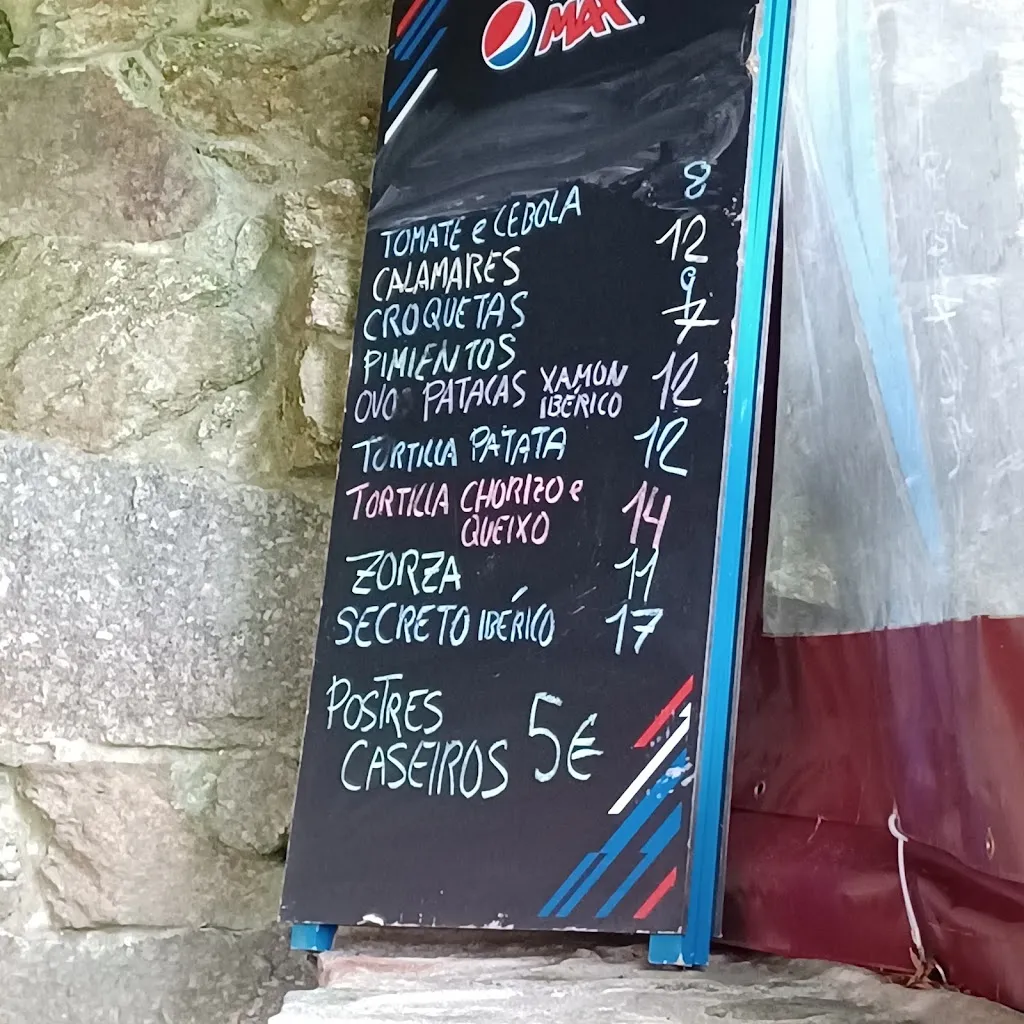 MAX
TOMATE e CEBOLA 8
CALAMARES 12
CROQUETAS 9
PIMIENTOS 7
OVO PATACAS XAMON IBÉRICO 12
TORTILLA PATATA 12
TORTILLA CHORIZO e QUEIXO 14
ZORZA 11
SECRETO IBÉRICO 17
POSTRES
CASEIROS 5€